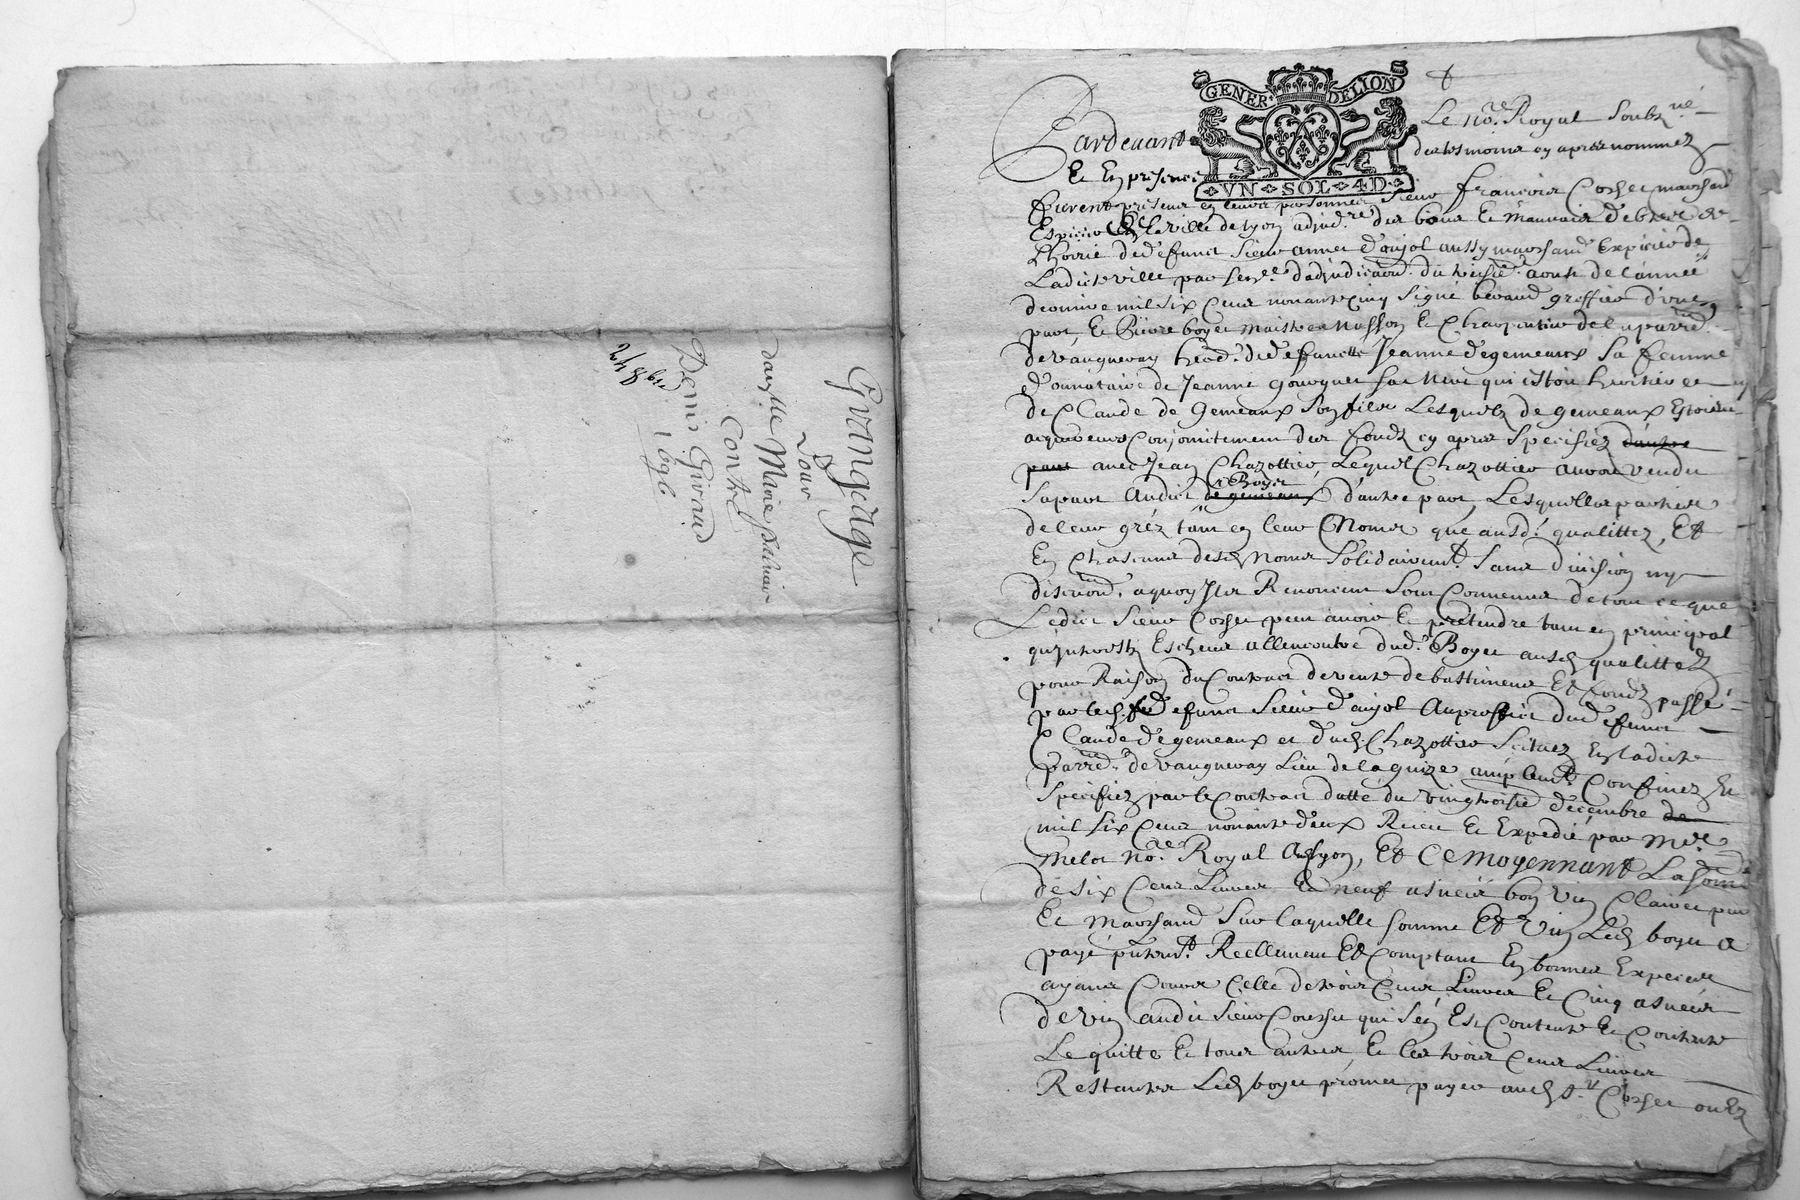 Grangeage
Pour
damlle Marie
Contre
Denis Giraud
1696
GENER. DELION
VN SOL 4D
Pardevant Le no.re Royal Soubz.né
Et En presence des tesmoins cy apres nommez
furent presens en leurs personnes Sieur francois Corset marchand
Espicier de la ville de Lyon adjud.re des biens Et mauvais debtes de
Lhoirie de defunct Sieur annet Daujol aussy marchand Expicier de
Ladicte ville par sen.ce dadjudication du troisie.e aoust de l'année
derniere mil six Cens nonante Cinq Signé beraud greffier d'une
part, Et Pierre boyer maistre Masson Et Charpentier de la parr.e
de vaugneray herd. de defuncte Jeanne degemeaux sa femme
donnataire de Jeanne sa Mere qui estoit heritiere
de Claude de gemeaux Son filz Lesquels de gemeaux Estoient
acquereurs Conjoinctement des fondz cy apres Specifiez dautre
part avec Jean Chazottier, Lequel Chazottier auroit vendu
Sa part Audict Boyer de gemeaux d'autre part, Lesquelles parties
de leur gréz tant en leur Nomes que ausd. qualittez, Et
En Chascune desd. Nomes Solidairemt. Sans division ny
discution, aquoy Ils Renoncent Sont Convenus de tout ce que
Ledict Sieur Corset peut avoir Et prétendre tant en principal
qu'interestz Escheus allencontre dud. Boyer ausd. qualittez
pour Raison du Contract de vente de bastimens Et fondz passé
par led. defunct Sieur daujol Auproffict dud. defunct
Claude degemeaux et dud. Chazottier Scituez En ladicte
parr.e de vaugneray Lieu de la guize amplemt. Confinez Et
Specifiez par le Contract datté du vingtroisie.e decembre de
mil six Cens nonante deux Receu Et Expedié par M.e
Melot no.re Royal Aud. Lyon, Et Ce moyennant La somme
de six Cens Livres Et neuf asnées bon vin Clairet pur
Et Marchand Sur laquelle somme Et Vin Led. boyer a
payé presentemt. Reellement Et Comptant En bonnes Especes
ayans Cours Celle de trois Cens Livres Et Cinq asnées
de vin audit Sieur Corset qui s'en Est Contenté Et Contente
Le quitte Et tous autres Et les trois Cens Livres
Restantes Led. boyer promet payer aud. Sr. Corset ou Ez